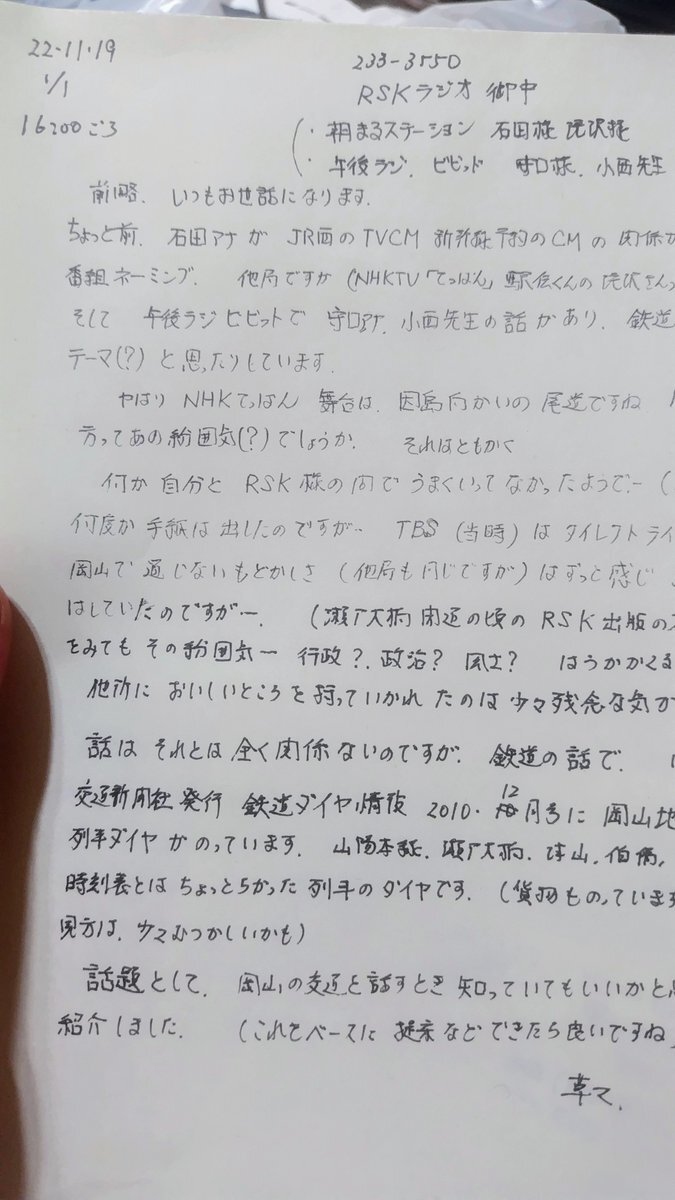 22.11.19
1/1
16:00ごろ
233-3550
RSKラジオ 御中
(・朝まるステーション 石田様 滝沢様
・午後ラジ. ビビッド 守口様. 小西先生
前略. いつもお世話になります.
ちょっと前. 石田アナが JR西のTVCM 新幹線予約のCMの 関係か
番組ネーミング. 他局ですか (NHKTV「てっぱん」駅伝くんの滝沢さん
そして 午後ラジビビットで 守口アナ. 小西先生の話があり. 鉄道
テーマ(?) と思ったりしています.
やはり NHKてっぱん 舞台は. 因島向かいの 尾道ですね
方ってあの紛囲気(?)でしょうか. それはともかく
何か 自分と RSK様の間で うまくいってなかったようで.ー (
何度か 手紙は 出したのですがー. TBS (当時) は タイレクトライ
岡山で 通じないもどかしさ (他局も同じですが) はずっと感じ
はしていたのですがー. (瀬戸大橋 開通の頃の RSK出版の
をみても その紛囲気ー 行政?. 政治? 風土?
他所に おいしいところを持っていかれたのは 少々残念な気が
話は それとは 全く関係ないのですが. 鉄道の話で.
交通新聞社 発行 鉄道ダイヤ情報 2010.12月号に 岡山地
列車ダイヤ がのっています. 山陽本線. 瀬戸大橋. 津山. 伯備.
時刻表とは ちょっとちがった 列車のダイヤです. (貨物ものっています
見方は. 少々むつかしいかも)
話題として. 岡山の交通を話すとき 知っていてもいいかと
紹介しました. (これをベースに 提案などできたら良いですね
草々.